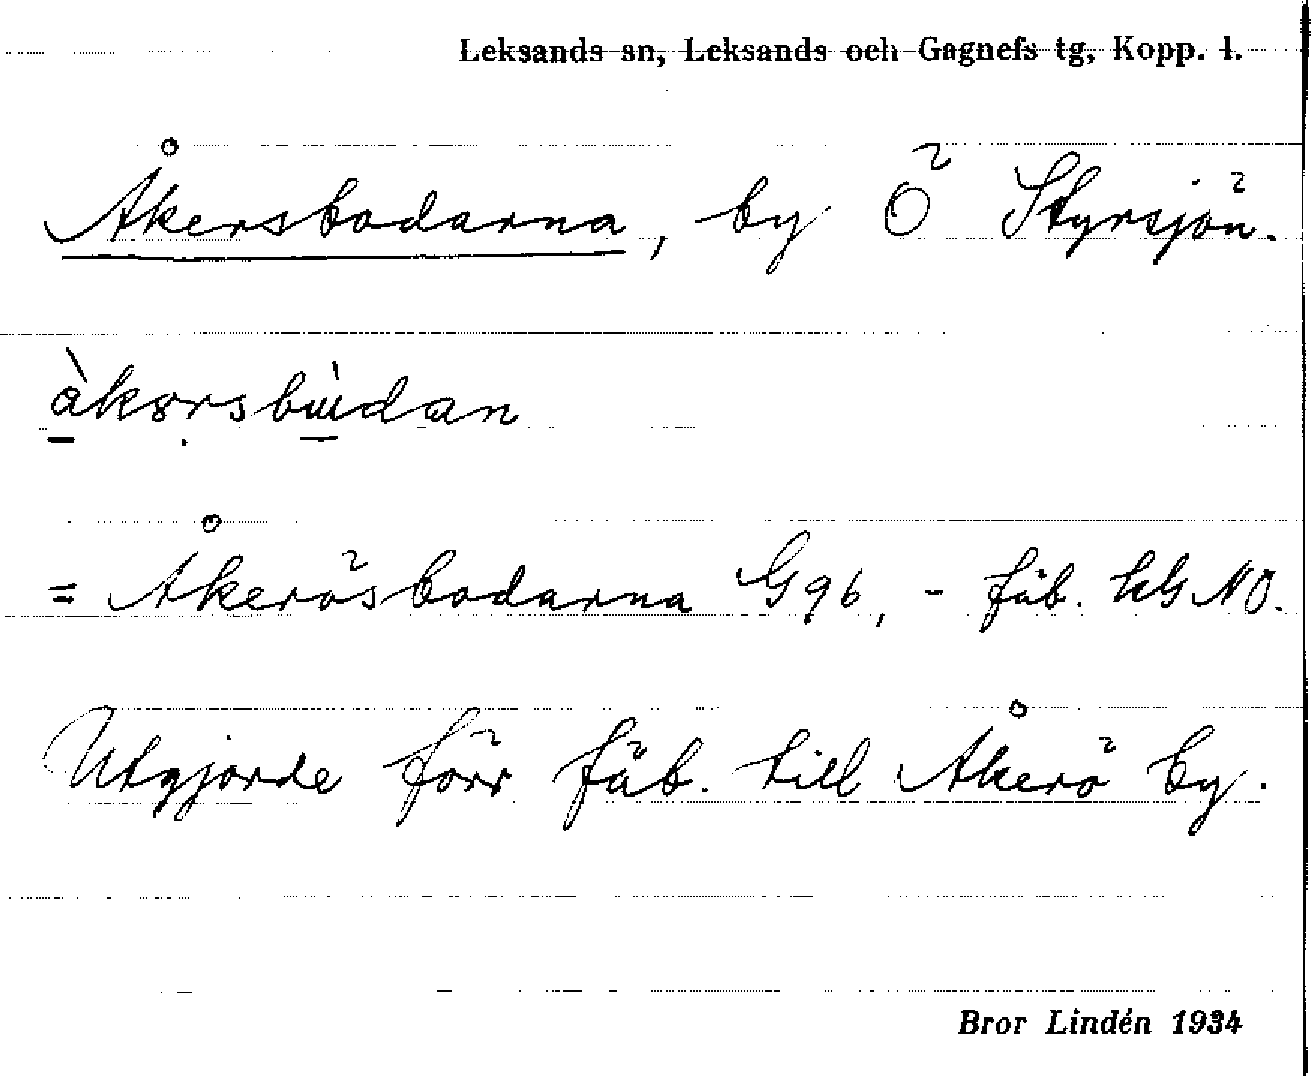 Leksands sn, Leksands och Gagnefs tg, Kopp. l.
Åkersbodarna, by Ö Styrsjön.
= Åkerösbodarna G96, - fäb. kG NO.
Utgjorde förr fäb. till Åkerö by.
Bror Lindén 1934